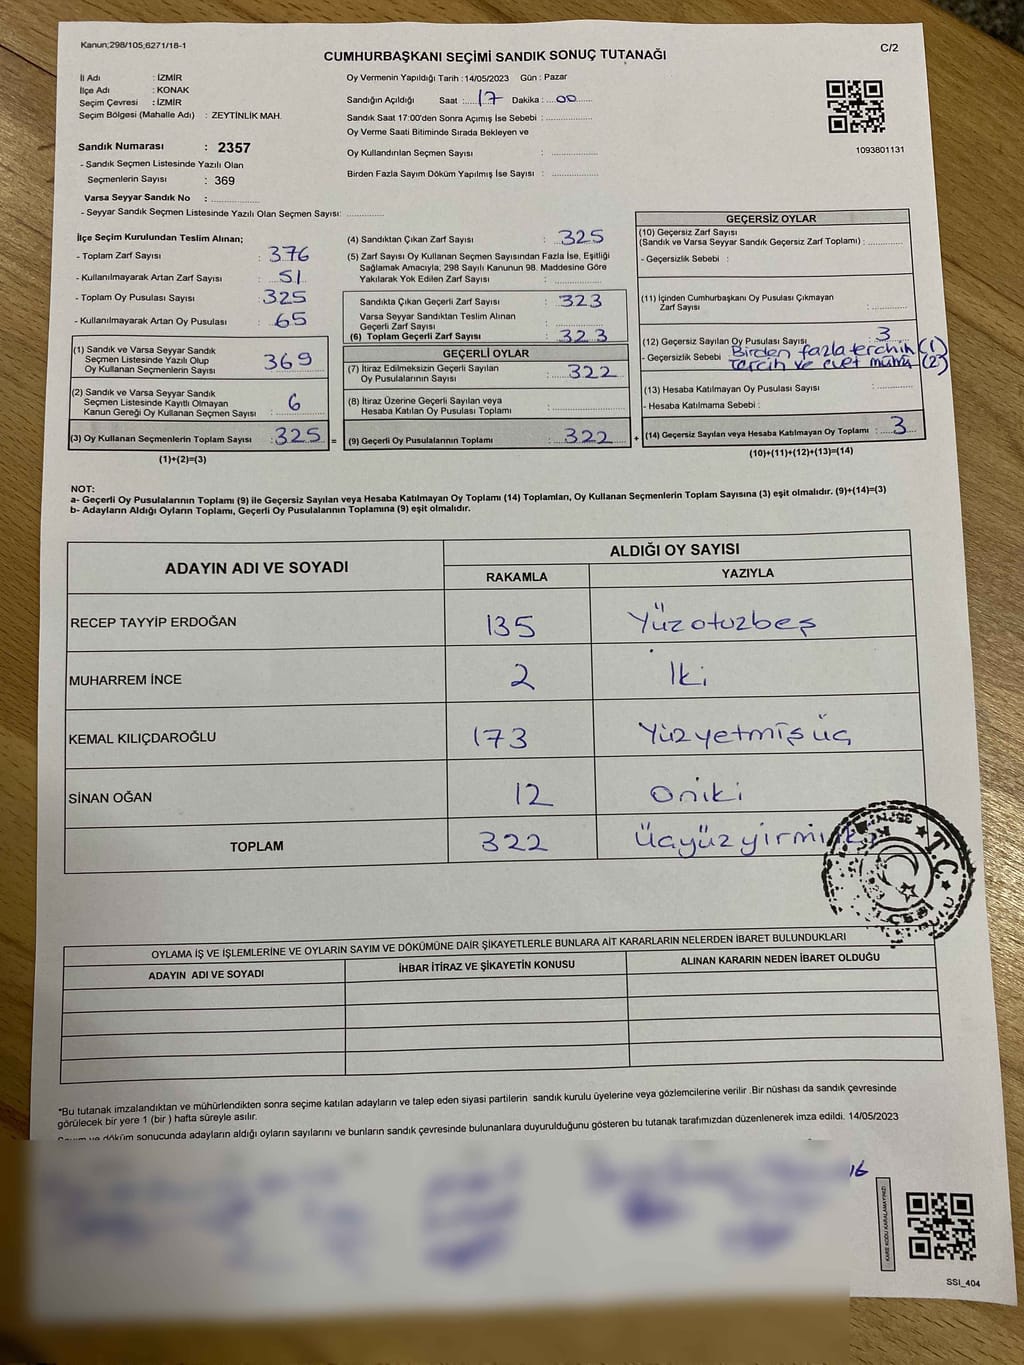 Kanun;298/105;6271/18-1
C/2
CUMHURBAŞKANI SEÇİMİ SANDIK SONUÇ TUTANAĞI
İl Adı : İZMİR
İlçe Adı : KONAK
Seçim Çevresi : İZMİR
Seçim Bölgesi (Mahalle Adı) : ZEYTİNLİK MAH.
Sandık Numarası : 2357
- Sandık Seçmen Listesinde Yazılı Olan
Seçmenlerin Sayısı : 369
Varsa Seyyar Sandık No :
- Seyyar Sandık Seçmen Listesinde Yazılı Olan Seçmen Sayısı:
Oy Vermenin Yapıldığı Tarih : 14/05/2023 Gün : Pazar
Sandığın Açıldığı Saat : 17 Dakika : 00
Sandık Saat 17:00'den Sonra Açımış İse Sebebi :
Oy Verme Saati Bitiminde Sırada Bekleyen ve
Oy Kullandırılan Seçmen Sayısı :
Birden Fazla Sayım Döküm Yapılmış İse Sayısı :
1093801131
İlçe Seçim Kurulundan Teslim Alınan;
- Toplam Zarf Sayısı : 376
- Kullanılmayarak Artan Zarf Sayısı : 51
- Toplam Oy Pusulası Sayısı : 325
- Kullanılmayarak Artan Oy Pusulası : 65
(1) Sandık ve Varsa Seyyar Sandık
Seçmen Listesinde Yazılı Olup
Oy Kullanan Seçmenlerin Sayısı : 369
(2) Sandık ve Varsa Seyyar Sandık
Seçmen Listesinde Kayıtlı Olmayan
Kanun Gereği Oy Kullanan Seçmen Sayısı : 6
(3) Oy Kullanan Seçmenlerin Toplam Sayısı : 325 =
(1)+(2)=(3)
(4) Sandıktan Çıkan Zarf Sayısı : 325
(5) Zarf Sayısı Oy Kullanan Seçmen Sayısından Fazla İse, Eşitliği
Sağlamak Amacıyla, 298 Sayılı Kanunun 98. Maddesine Göre
Yakılarak Yok Edilen Zarf Sayısı :
Sandıkta Çıkan Geçerli Zarf Sayısı : 323
Varsa Seyyar Sandıktan Teslim Alınan
Geçerli Zarf Sayısı :
(6) Toplam Geçerli Zarf Sayısı : 323
GEÇERLİ OYLAR
(7) İtiraz Edilmeksizin Geçerli Sayılan
Oy Pusulalarının Sayısı : 322
(8) İtiraz Üzerine Geçerli Sayılan veya
Hesaba Katılan Oy Pusulası Toplamı :
(9) Geçerli Oy Pusulalarının Toplamı : 322 +
GEÇERSİZ OYLAR
(10) Geçersiz Zarf Sayısı
(Sandık ve Varsa Seyyar Sandık Geçersiz Zarf Toplamı) :
- Geçersizlik Sebebi :
(11) İçinden Cumhurbaşkanı Oy Pusulası Çıkmayan
Zarf Sayısı :
(12) Geçersiz Sayılan Oy Pusulası Sayısı : 3
- Geçersizlik Sebebi : Birden fazla tercih (1)
Tercih ve evet mührü (2)
(13) Hesaba Katılmayan Oy Pusulası Sayısı :
- Hesaba Katılmama Sebebi :
(14) Geçersiz Sayılan veya Hesaba Katılmayan Oy Toplamı : 3
(10)+(11)+(12)+(13)=(14)
NOT:
a- Geçerli Oy Pusulalarının Toplamı (9) ile Geçersiz Sayılan veya Hesaba Katılmayan Oy Toplamı (14) Toplamları, Oy Kullanan Seçmenlerin Toplam Sayısına (3) eşit olmalıdır. (9)+(14)=(3)
b- Adayların Aldığı Oyların Toplamı, Geçerli Oy Pusulalarının Toplamına (9) eşit olmalıdır.
ADAYIN ADI VE SOYADI ALDIĞI OY SAYISI
RAKAMLA YAZIYLA
RECEP TAYYİP ERDOĞAN 135 Yüzotuzbeş
MUHARREM İNCE 2 İki
KEMAL KILIÇDAROĞLU 173 Yüzyetmişüç
SİNAN OĞAN 12 Oniki
TOPLAM 322 Üçyüzyirmi
T.C.
OYLAMA İŞ VE İŞLEMLERİNE VE OYLARIN SAYIM VE DÖKÜMÜNE DAİR ŞİKAYETLERLE BUNLARA AİT KARARLARIN NELERDEN İBARET BULUNDUKLARI
ADAYIN ADI VE SOYADI İHBAR İTİRAZ VE ŞİKAYETİN KONUSU ALINAN KARARIN NEDEN İBARET OLDUĞU
*Bu tutanak imzalandıktan ve mühürlendikten sonra seçime katılan adayların ve talep eden siyasi partilerin sandık kurulu üyelerine veya gözlemcilerine verilir .Bir nüshası da sandık çevresinde
görülecek bir yere 1 (bir ) hafta süreyle asılır.
Sayım ve döküm sonucunda adayların aldığı oyların sayılarını ve bunların sandık çevresinde bulunanlara duyurulduğunu gösteren bu tutanak tarafımızdan düzenlenerek imza edildi. 14/05/2023
16
KARE KODU KARALAMAYINIZ!
SSI_404